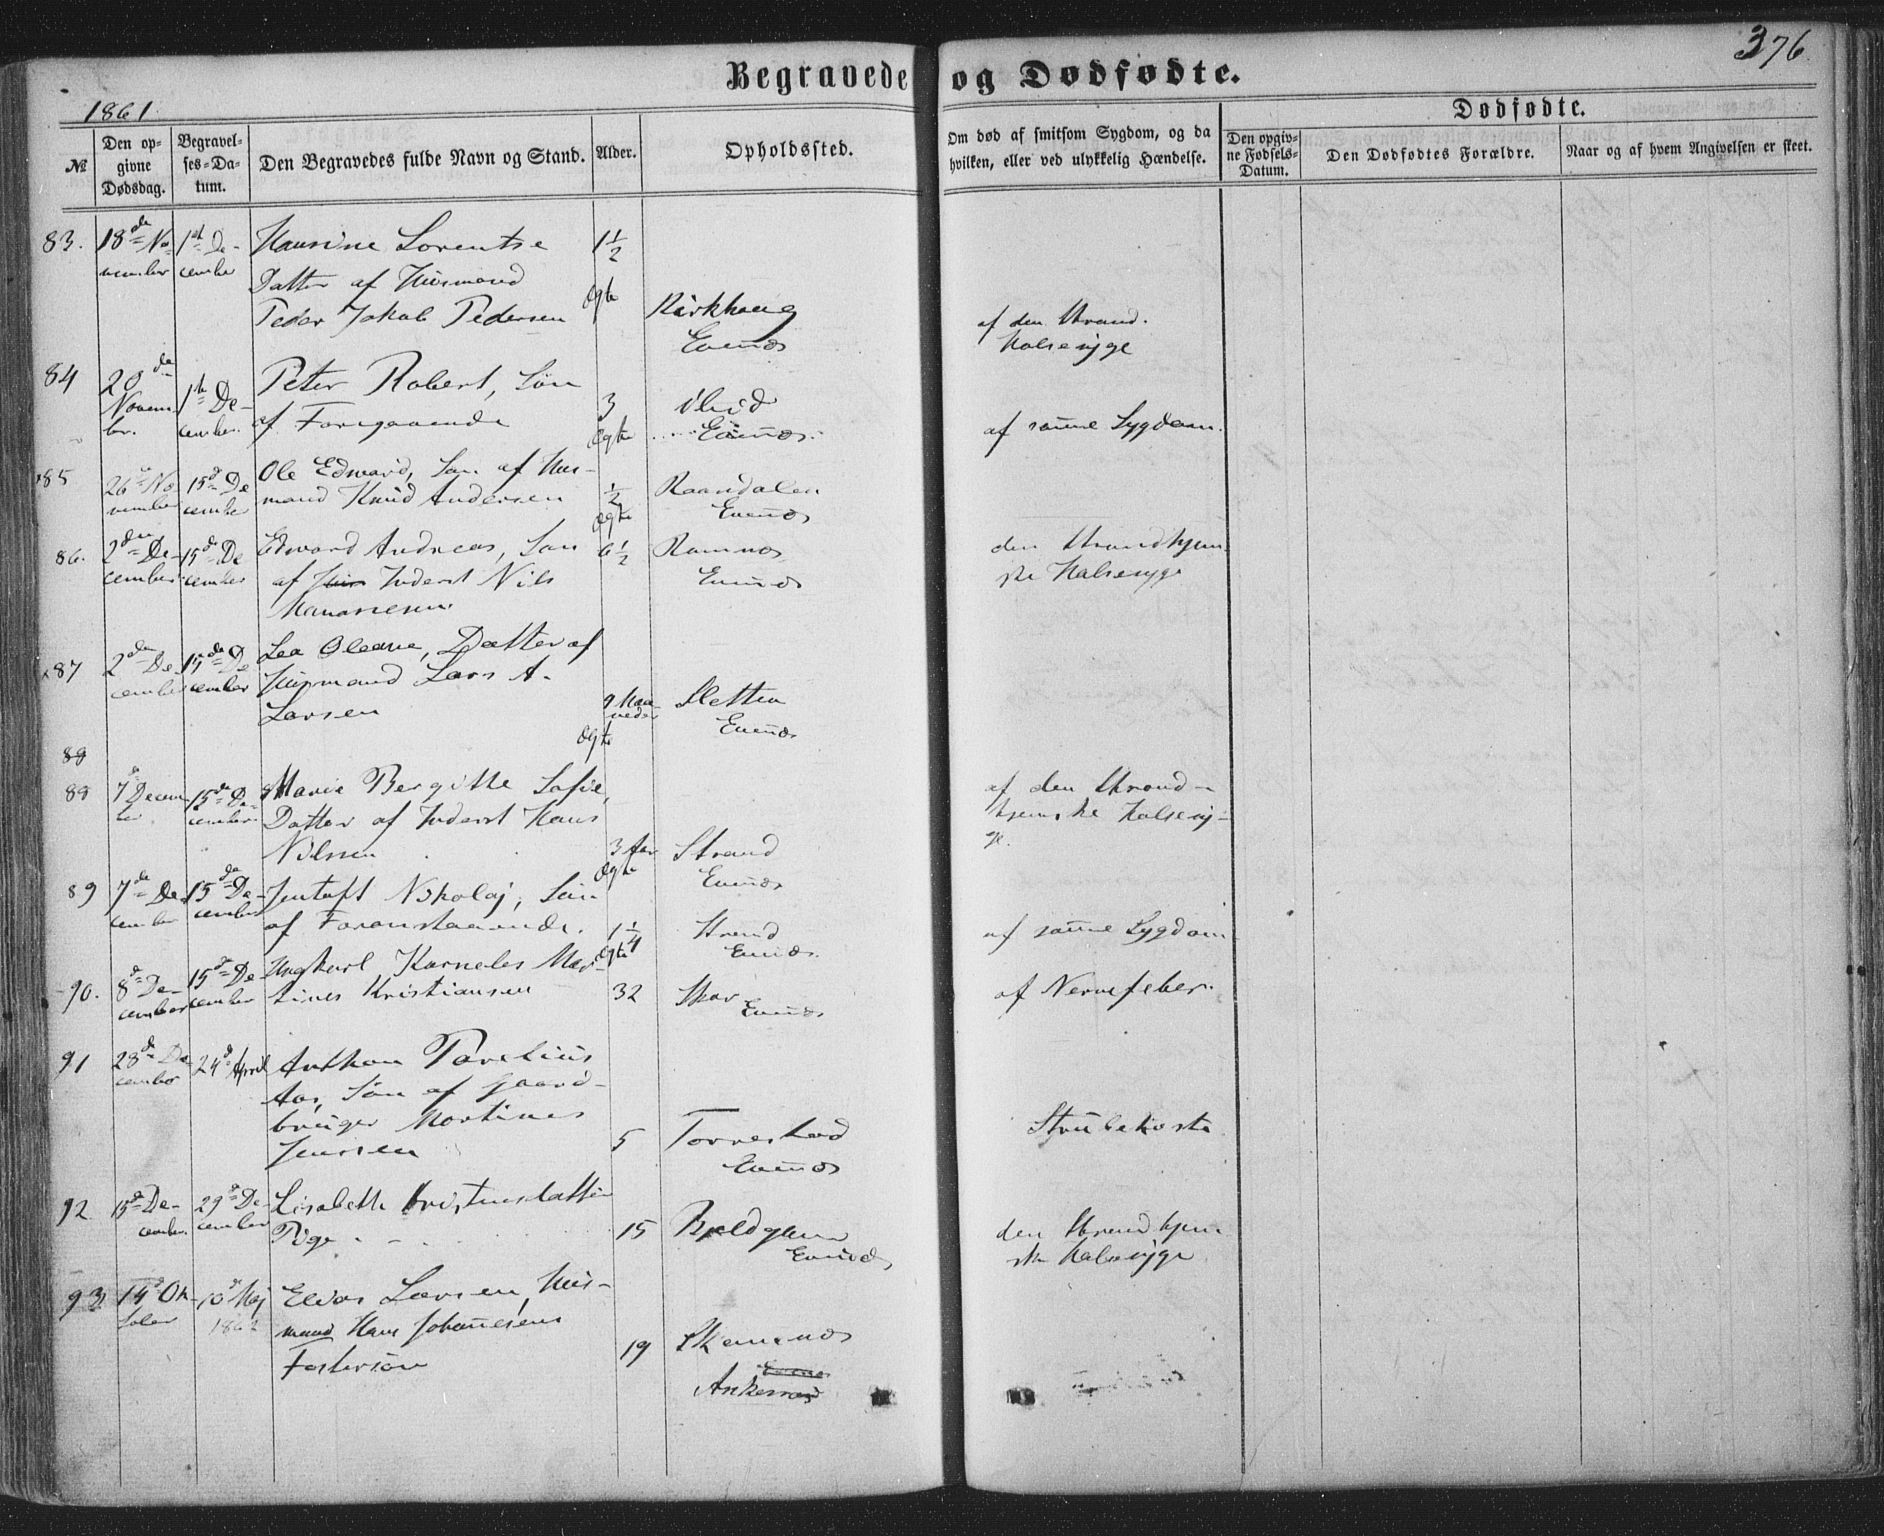 Begravede og Dødfødte.
376
1861.
№
Den opgivne Dødsdag.
Begravelses-Datum.
Den Begravedes fulde Navn og Stand.
Alder.
Opholdssted.
Om død af smitsom Sygdom, og da hvilken, eller ved ulykkelig Hændelse.
Dødfødte.
Den opgivne Fødsels-Datum.
Den Dødfødtes Forældre.
Naar og af hvem Angivelsen er skeet.
83. 18de November 1st December Hansine Lorentse 1½
Datter af Husmand
Peder Jakob Pedersen Ægte Kirkhaug
Evenæs
af den Strand.
Halsesyge
84 20de Novembr. 1ste December. Peter Robert, Søn
af Foregaaende 3 Ægte ibid
Evenæs.
af samme Sygdom.
85 26de November 15de December Ole Edward, Søn af Hus-
mand Knud Andersen ½ Ægte Raandalen
Evenæs
86. 2den December 15de December Edvard Andreas, Søn 6½ Ramnæs
af Inderst Nils Evenæs
Manassesen
den Strandhjem-
ske Halsesyge
87 2den December 15de December Lea Oleane, Datter af
Husmand Lars A.
Larsen 9 Maaneder Sletten
Ægte Evenæs
88
88 7de December 15de December Marie Bergitte Sofie,
Datter af Inderst Hans
Nilssen 3 Aar Strand
Ægte Evenæs
af den Strand-
hjemske Halsesy-
ge.
89 7de December 15de December Jentoft Nikolaj, Søn
af Foranstaaende. 1¼ Strand
Ægte Evenæs.
af samme Sygdom
90. 8de December 15de December Ungkarl Kornelis Mar-
tines Kristiansen 32
Evenæs
af Nervefeber.
91 28de December 24de April Anthon Torelius
Aas, Søn af Gaard-
bruger Mortines
Jenssen 5 Torrestad
Evenæs
Strubehoste
92 15de December. 29de December Lisabeth Kristensdatter
Pige 15
Evenæs
den Strandhjem-
ske Halsesyge
93. 14de Oktober 10de Maj 1862 Larsen, Hus-
mand Hans Johannesens
Fostersøn 19
Evenæs
Ankenæs